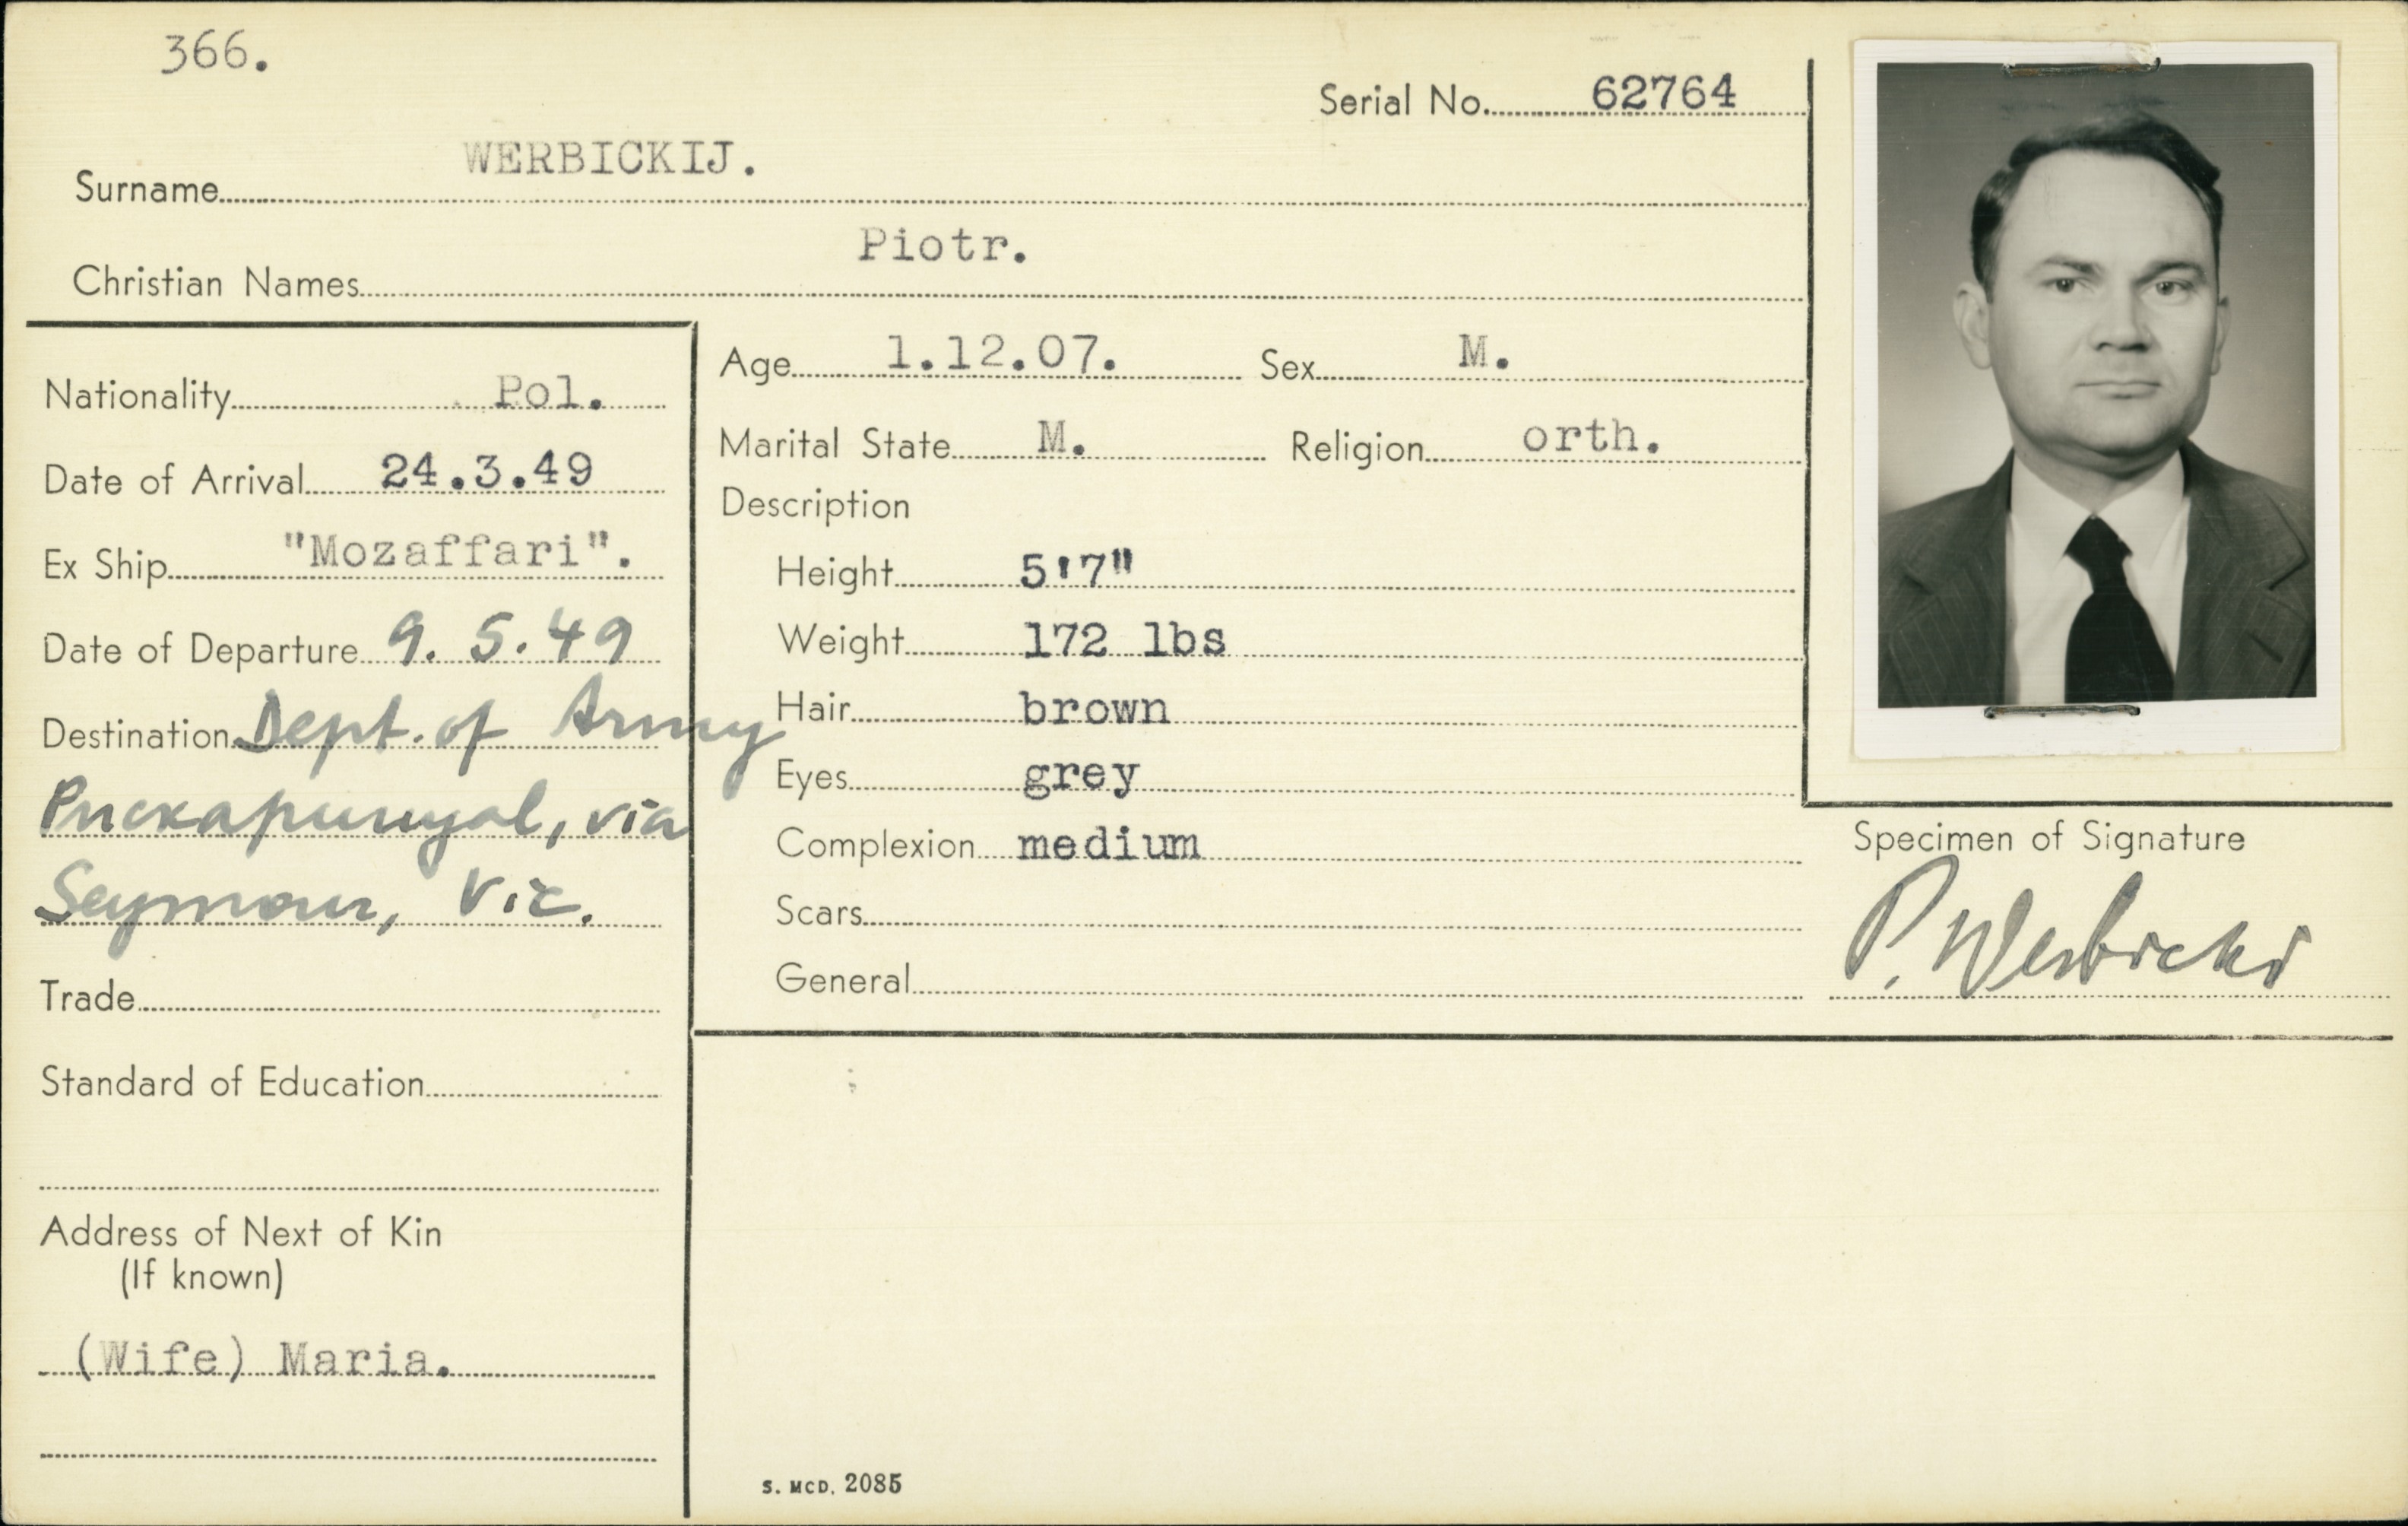 366.
Serial No. 62764
Surname WERBICKIJ.
Christian Names Piotr.
Nationality Pol.
Date of Arrival 24.3.49
Ex Ship "Mozaffari".
Date of Departure 9.5.49
Destination Dept. of Army
Puckapunyal, via
Seymour, Vic.
Trade
Standard of Education
Address of Next of Kin
(If known)
(Wife) Maria.
Age 1.12.07. Sex M.
Marital State M. Religion orth.
Description
Height 5'7"
Weight 172 lbs
Hair brown
Eyes grey
Complexion medium
Scars
General
Specimen of Signature
P. Werbicki
S. MCD. 2085